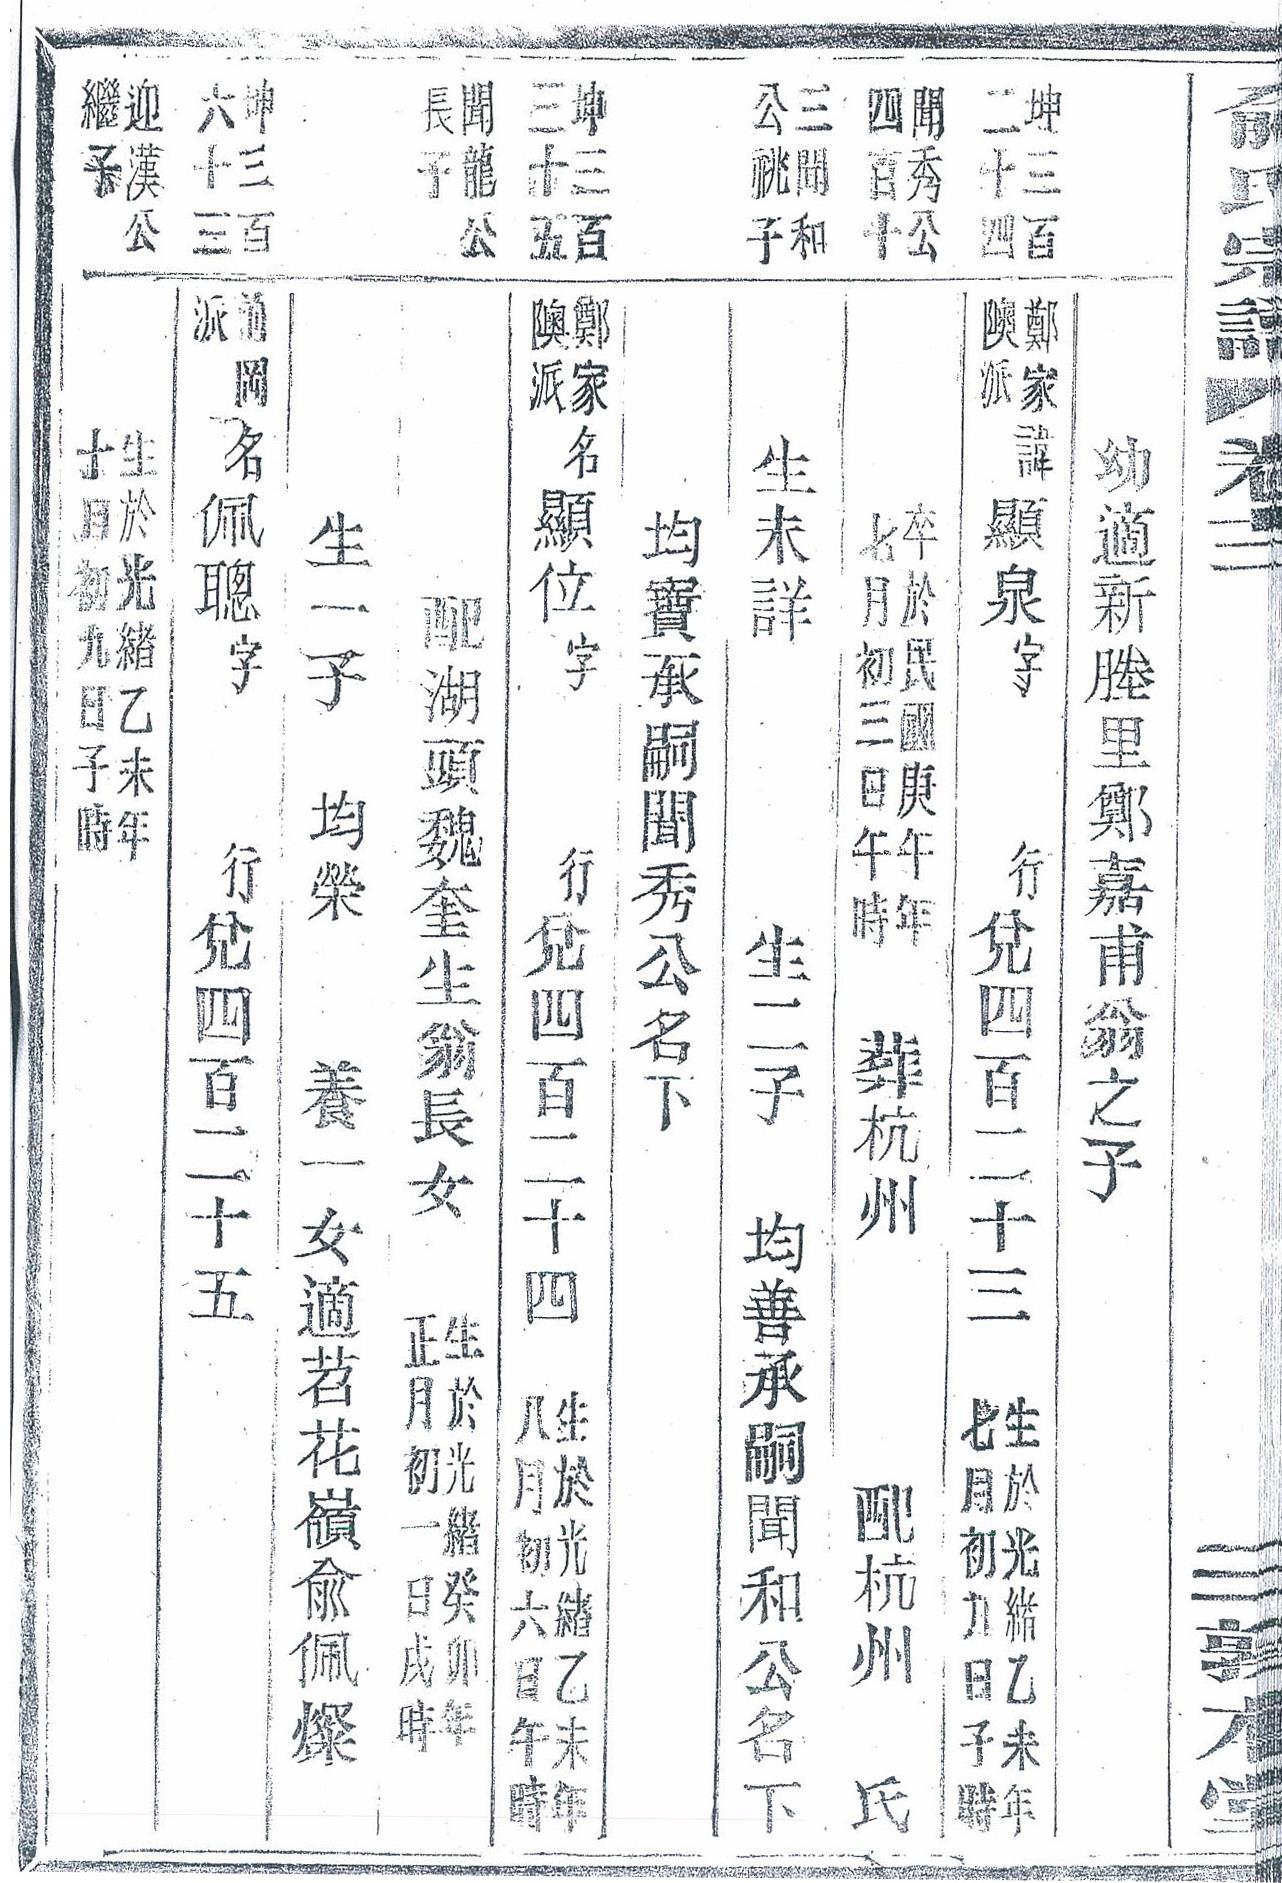 俞氏宗譜 卷三
三 敦本堂
幼適新塍里鄭嘉甫翁之子
坤三百
二十四
鄭家
隩派
諱顯泉字 行兌四百二十三
生於光緒乙未年
七月初九日子時
聞秀公
四百十
卒於民國庚午年
七月初三日午時
葬杭州 配杭州 氏
三聞和
公祧子
生未詳 生二子 均善承嗣聞和公名下
均寶承嗣聞秀公名下
坤三百
三十五
鄭家
隩派
名顯位字 行兌四百二十四
生於光緒乙未年
八月初六日午時
聞龍公
長子
配湖頭魏奎生翁長女
生於光緒癸卯年
正月初一日戌時
生一子 均榮 養一女適苕花嶺俞佩燦
坤三百
六十三
岡
派
名佩聰字 行兌四百二十五
迎漢公
繼子
生於光緒乙未年
十月初九日子時